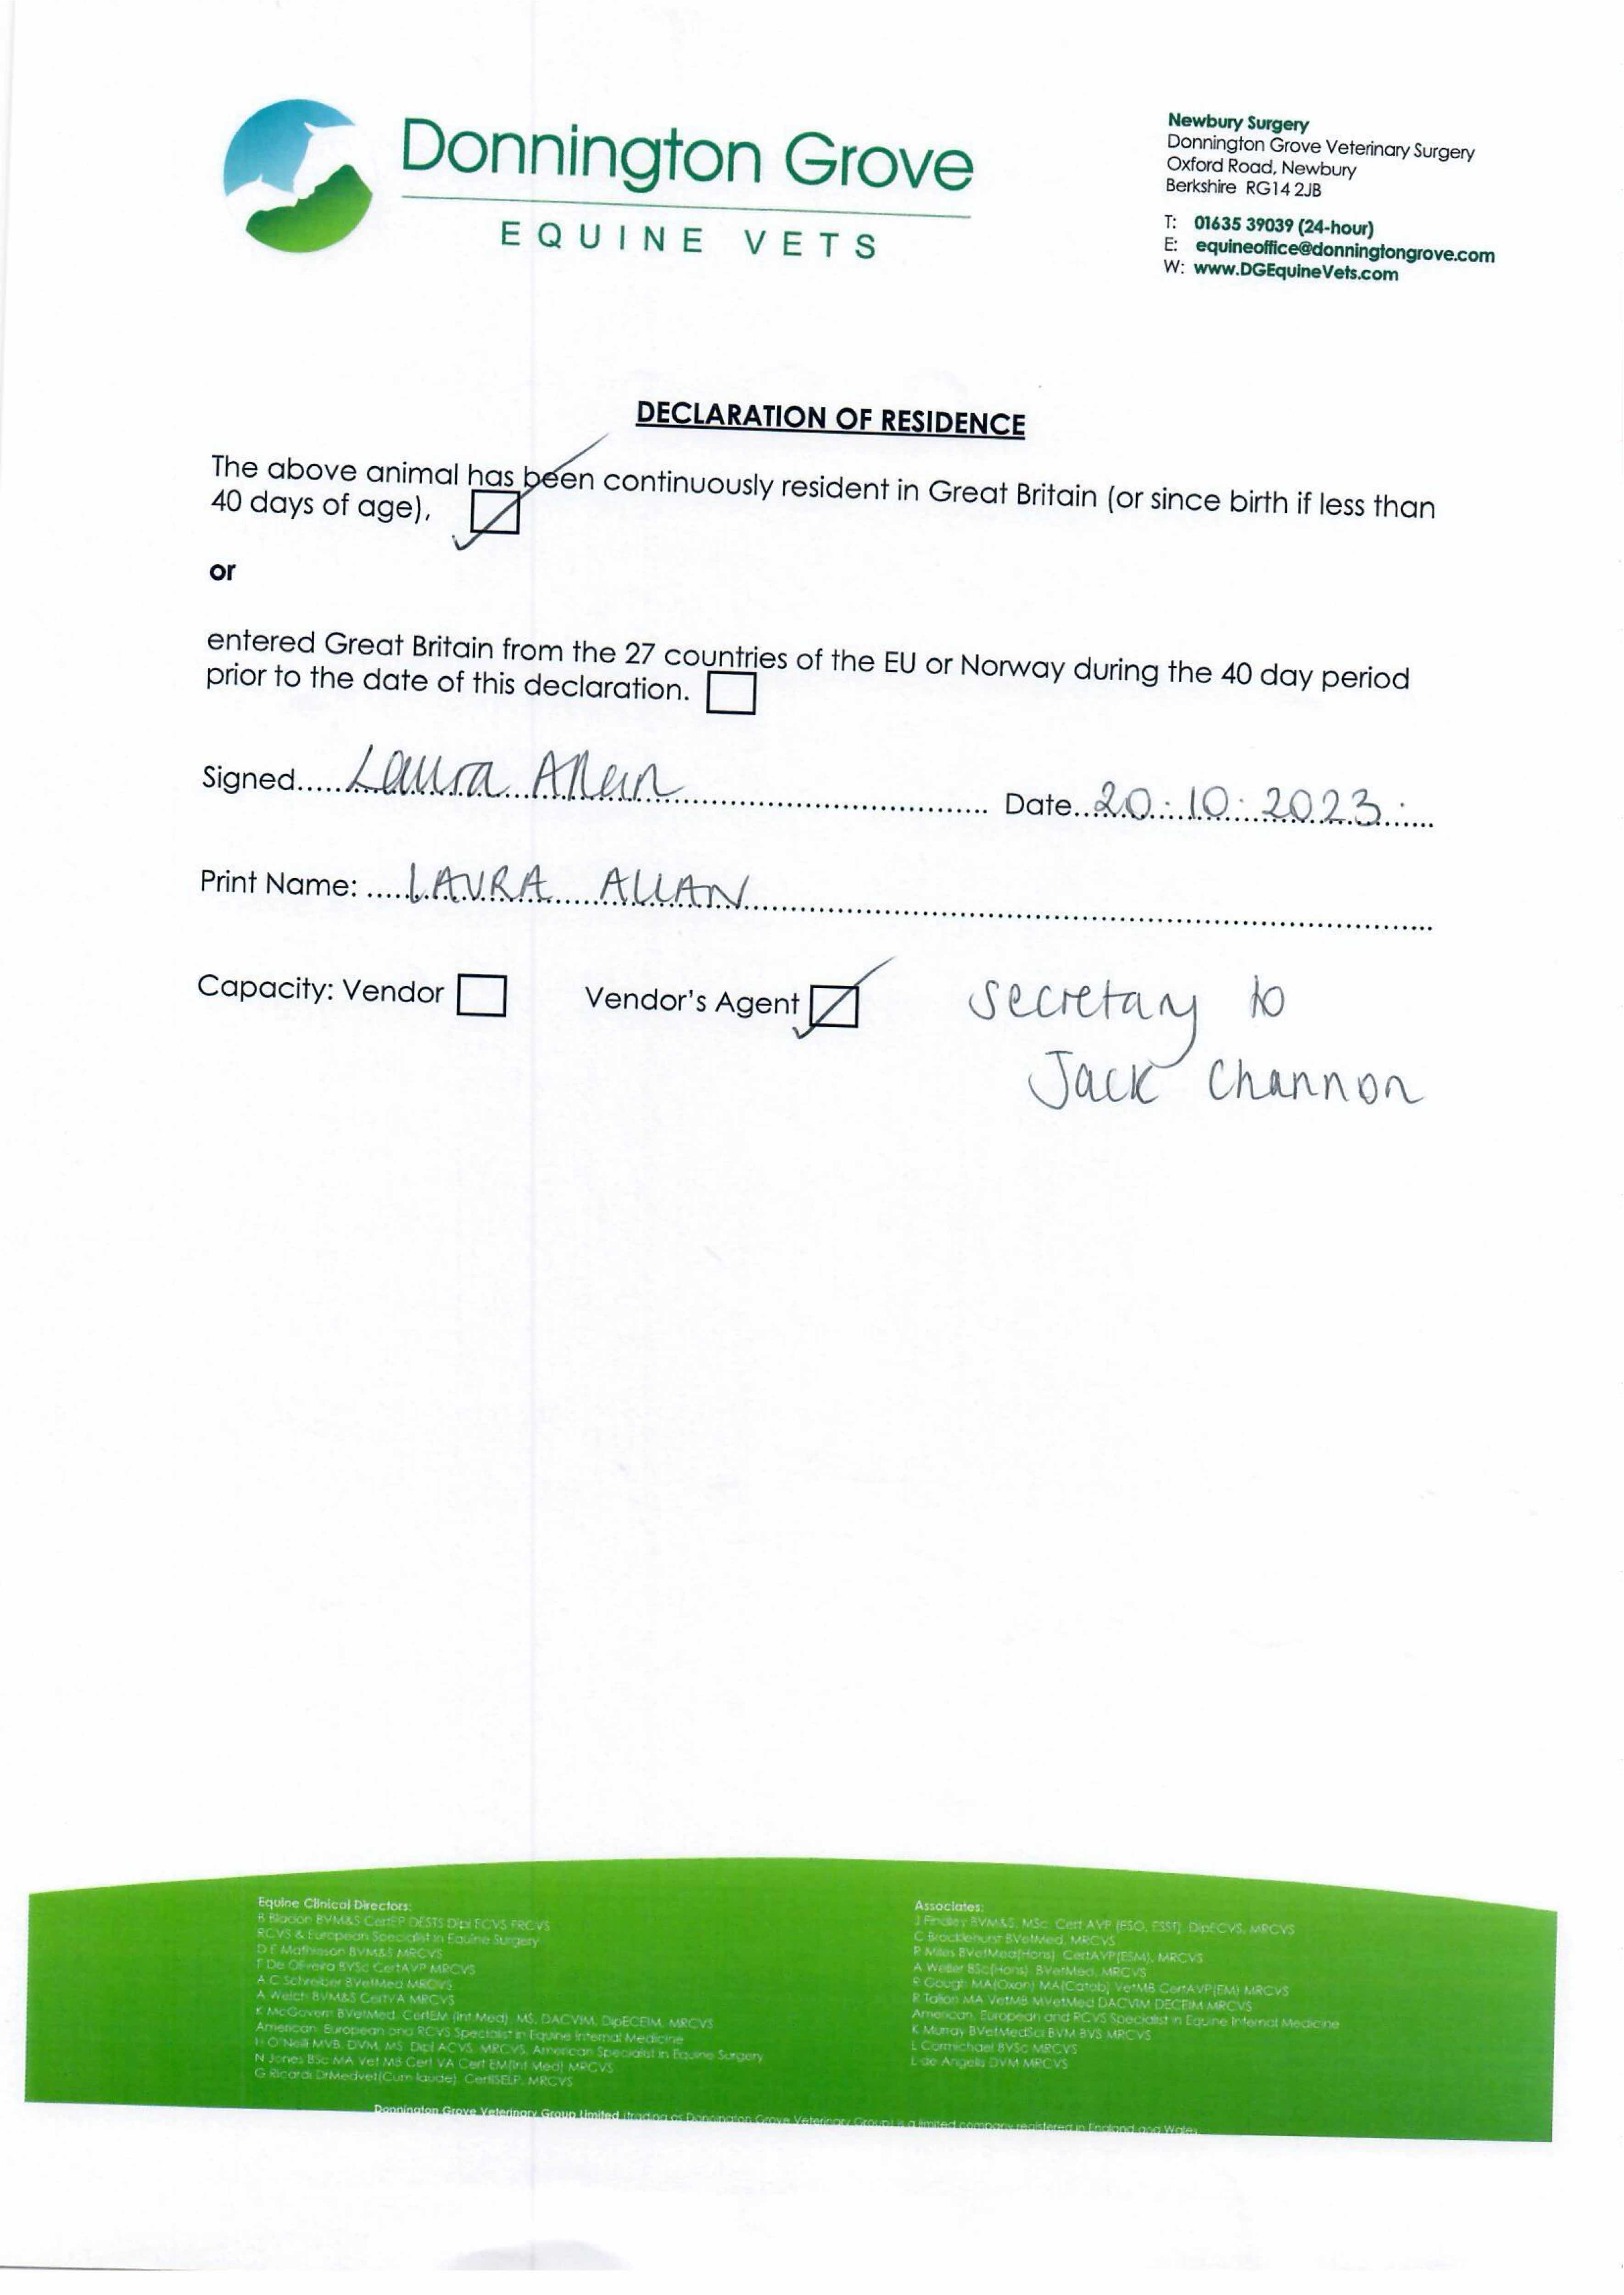 Donnington Grove
EQUINE VETS
Newbury Surgery
Donnington Grove Veterinary Surgery
Oxford Road, Newbury
Berkshire RG14 2JB
T: 01635 39039 (24-hour)
E: equineoffice@donningtongrove.com
W: www.DGEquineVets.com
DECLARATION OF RESIDENCE
The above animal has been continuously resident in Great Britain (or since birth if less than
40 days of age),
or
entered Great Britain from the 27 countries of the EU or Norway during the 40 day period
prior to the date of this declaration.
Signed.....Laura Allan.......... Date..20:10:2023:......
Print Name: .....LAURA ALLAN..........
Capacity: Vendor Vendor's Agent secretary to
Jack Channon
Equine Clinical Directors:
B Bladon BVM&S CertEP DESTS Dipl ECVS FRCVS
RCVS & European Specialist in Equine Surgery
D E Mathieson BVM&S MRCVS
T De Oliveira BVSc CertAVP MRCVS
A C Schreiber BVetMed MRCVS
A Welch BVM&S CertVA MRCVS
K McGovern BVetMed, CertEM (Int Med), MS, DACVIM, DipECEIM, MRCVS
American, European and RCVS Specialist in Equine Internal Medicine
H O'Neill MVB, DVM, MS, Dipl ACVS, MRCVS, American Specialist in Equine Surgery
N Jones BSc MA Vet MB Cert VA Cert EM(Int Med) MRCVS
G Ricardi DrMedvet(Cum laude), CertISELP, MRCVS
Associates:
J Findley BVM&S, MSc, Cert AVP (ESO, ESST), DipECVS, MRCVS
C Brocklehurst BVetMed, MRCVS
P Miles BVetMed(Hons), CertAVP(ESM), MRCVS
A Weller BSc(Hons), BVetMed, MRCVS
R Gough MA(Oxon) MA(Catab) VetMB CertAVP(EM) MRCVS
R Tallon MA VetMB MVetMed DACVIM DECEIM MRCVS
American, European and RCVS Specialist in Equine Internal Medicine
K Murray BVetMedSci BVM BVS MRCVS
L Cormichael BVSc MRCVS
L de Angelis DVM MRCVS
Donnington Grove Veterinary Group Limited (trading as Donnington Grove Veterinary Group) is a limited company registered in England and Wales